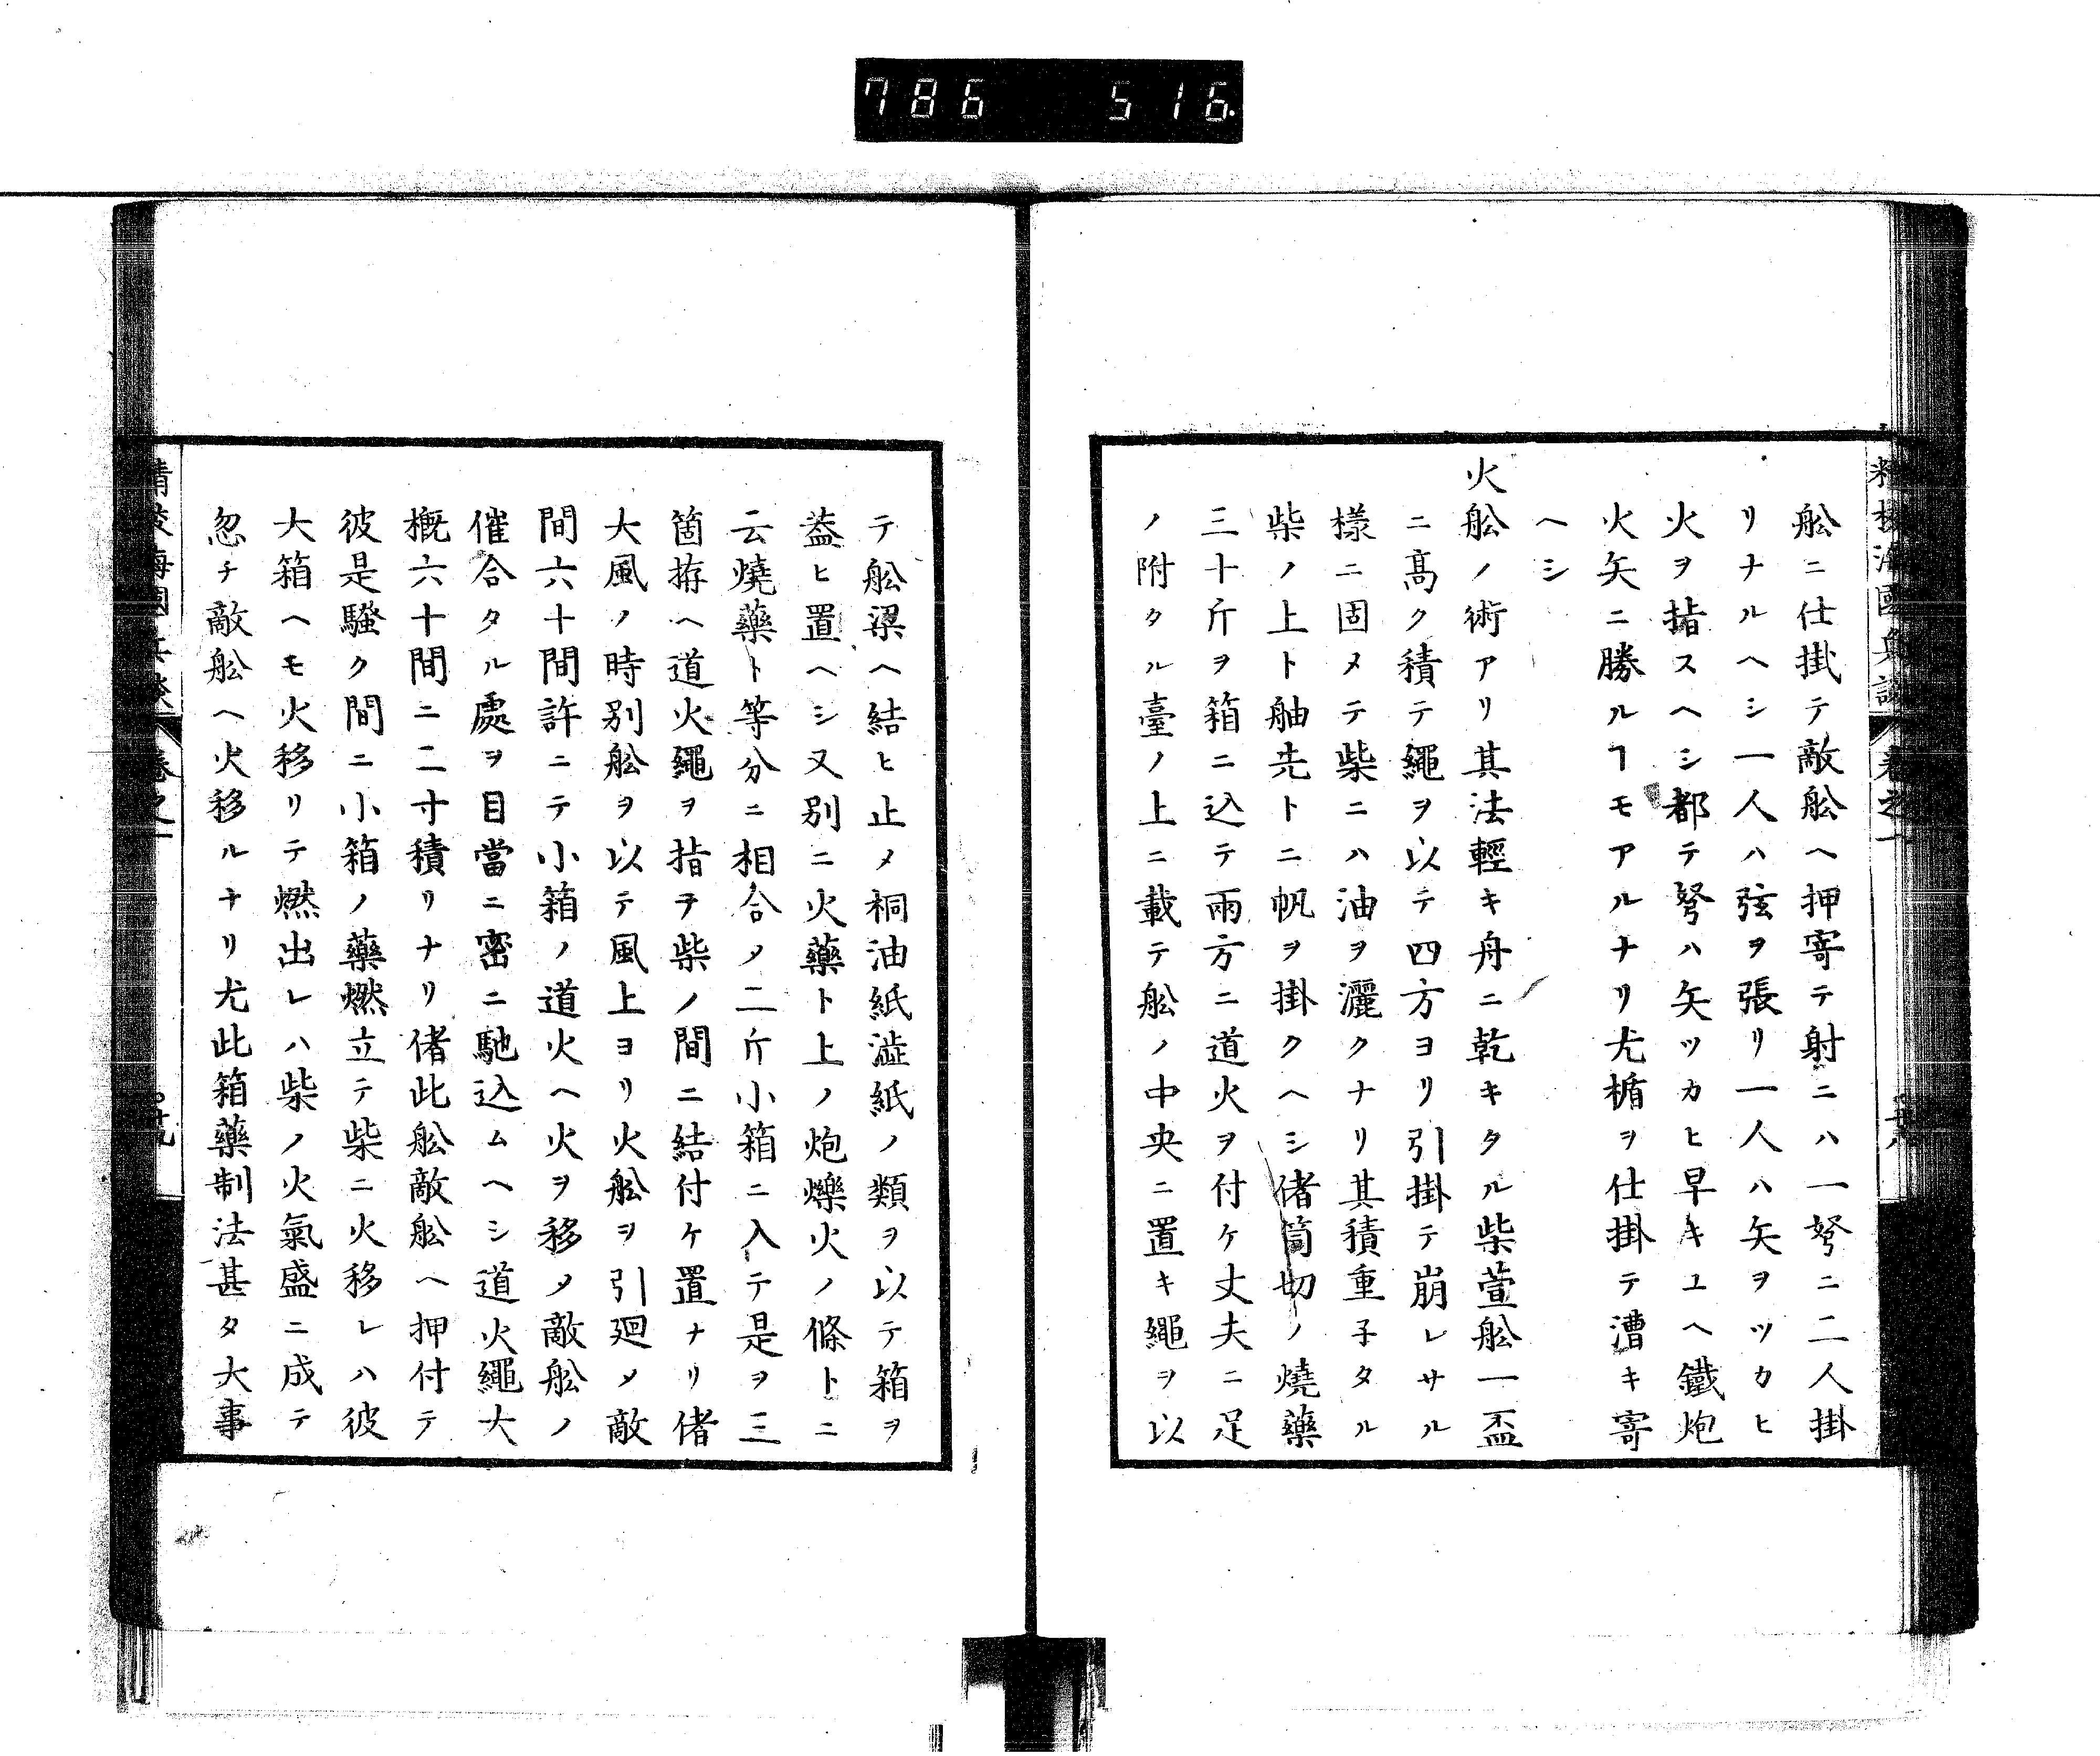 786 516.
精校海國兵談 卷之一
舩ニ仕掛テ敵舩ヘ押寄テ射ニハ一弩ニ二人掛
リナルヘシ一人ハ弦ヲ張リ一人ハ矢ヲツカヒ
火ヲ㨗スヘシ都テ弩ハ矢ツカヒ早キユヘ鐵炮
火矢ニ勝ルヿモアルナリ尤楯ヲ仕掛テ漕キ寄
ヘシ
火舩ノ術アリ其法輕キ舟ニ乾キタル柴萱舩一盃
ニ髙ク積テ繩ヲ以テ四方ヨリ引掛テ崩レサル
様ニ固メテ柴ニハ油ヲ灑クナリ其積重子タル
柴ノ上ト舳先トニ帆ヲ掛クヘシ偖筒切ノ燒藥
三十斤ヲ箱ニ込テ兩方ニ道火ヲ付ケ丈夫ニ足
ノ附タル臺ノ上ニ載テ舩ノ中央ニ置キ繩ヲ以
テ舩梁ヘ結ヒ止メ桐油紙澁紙ノ類ヲ以テ箱ヲ
葢ヒ置ヘシ又別ニ火藥ト上ノ炮爍火ノ條トニ
云燒藥ト等分ニ相合メ二斤小箱ニ入テ是ヲ三
箇拵ヘ道火繩ヲ指ヲ柴ノ間ニ結付ケ置ナリ偖
大風ノ時別舩ヲ以テ風上ヨリ火舩ヲ引廻メ敵
間六十間許ニテ小箱ノ道火ヘ火ヲ移メ敵舩ノ
催合タル處ヲ目當ニ密ニ馳込ムヘシ道火繩大
概六十間ニ二寸積リナリ偖此舩敵舩ヘ押付テ
彼是騷ク間ニ小箱ノ藥燃立テ柴ニ火移レハ彼
大箱ヘモ火移リテ燃出レハ柴ノ火氣盛ニ成テ
忽チ敵舩ヘ火移ルナリ尤此箱藥制法甚タ大事
精校海國兵談 卷之一